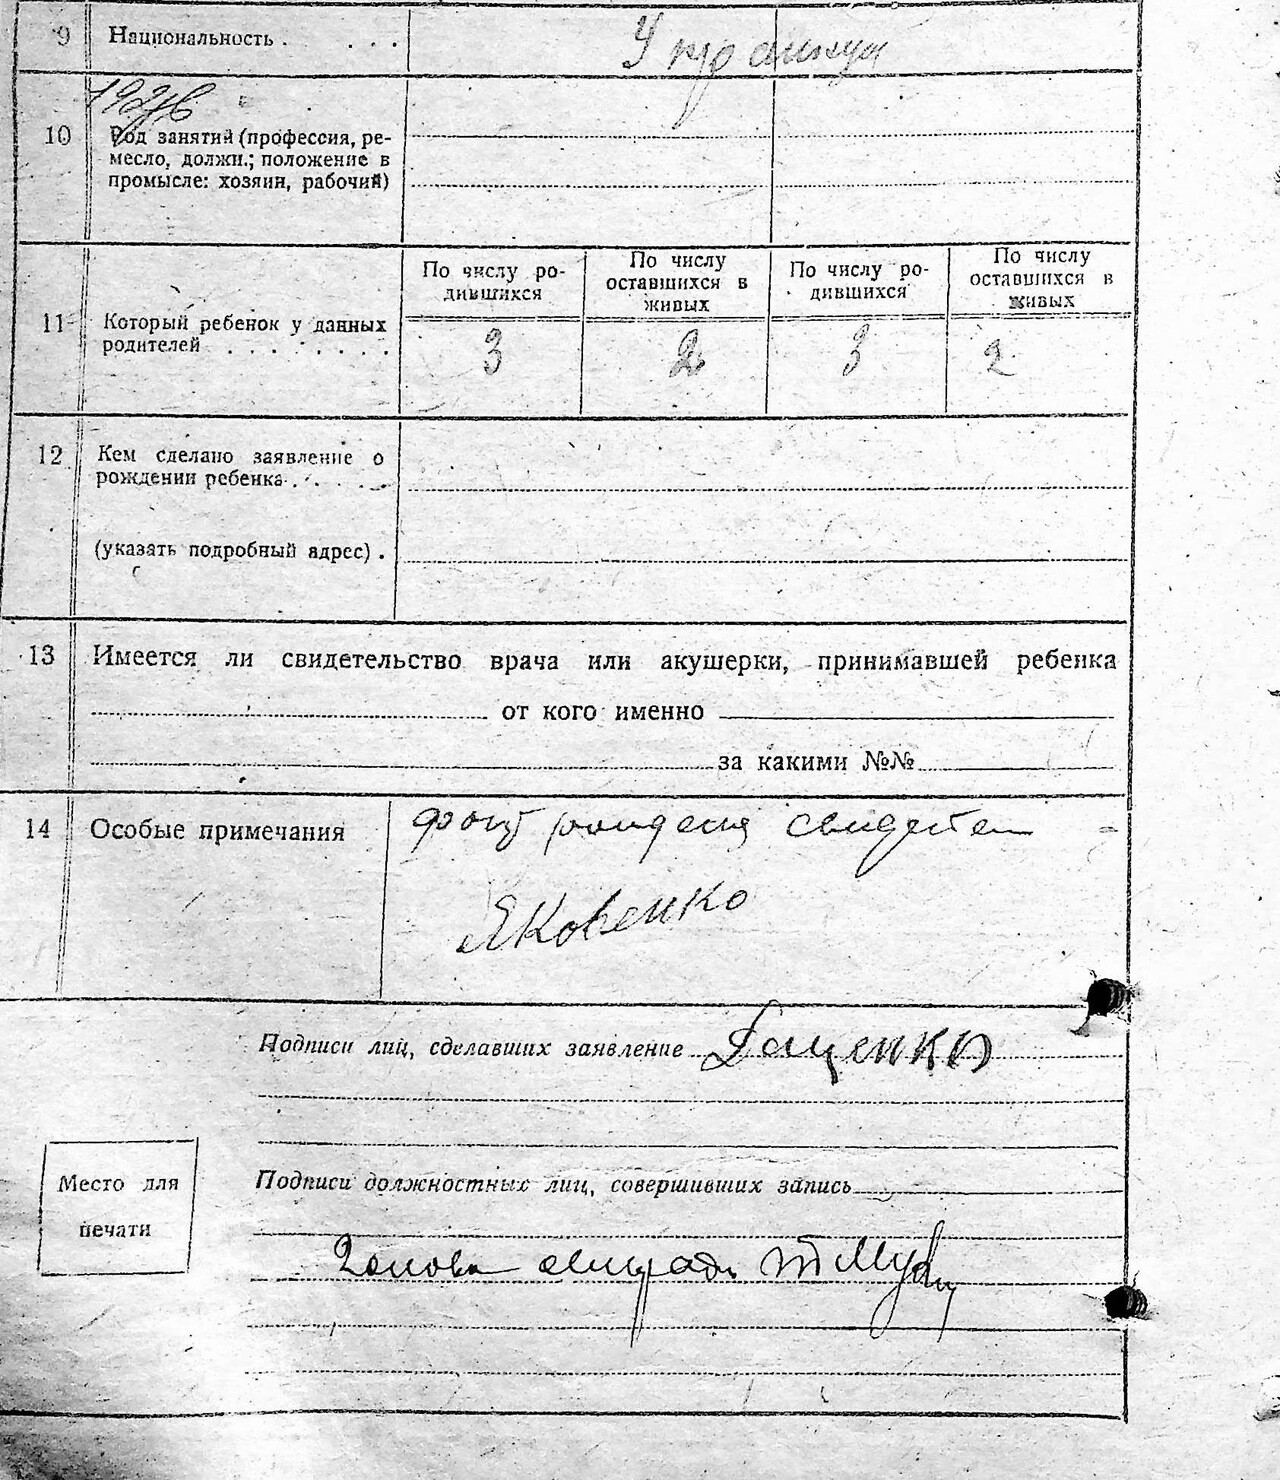 9 Национальность . . . .
10 Род занятий (профессия, ре-
месло, должн.; положение в
промысле: хозяин, рабочий)
11 Который ребенок у данных
родителей . . . . . . . .
По числу ро-
дившихся
По числу
оставшихся в
живых
По числу ро-
дившихся
По числу
оставшихся в
живых
3 2 3 2
12 Кем сделано заявление о
рождении ребенка . . . . .
(указать подробный адрес) .
13 Имеется ли свидетельство врача или акушерки, принимавшей ребенка
от кого именно
за какими №№
14 Особые примечания
факт
Яковенко
Подписи лиц, сделавших заявление Даценко
Подписи должностных лиц, совершивших запись
Место для
печати
Голова